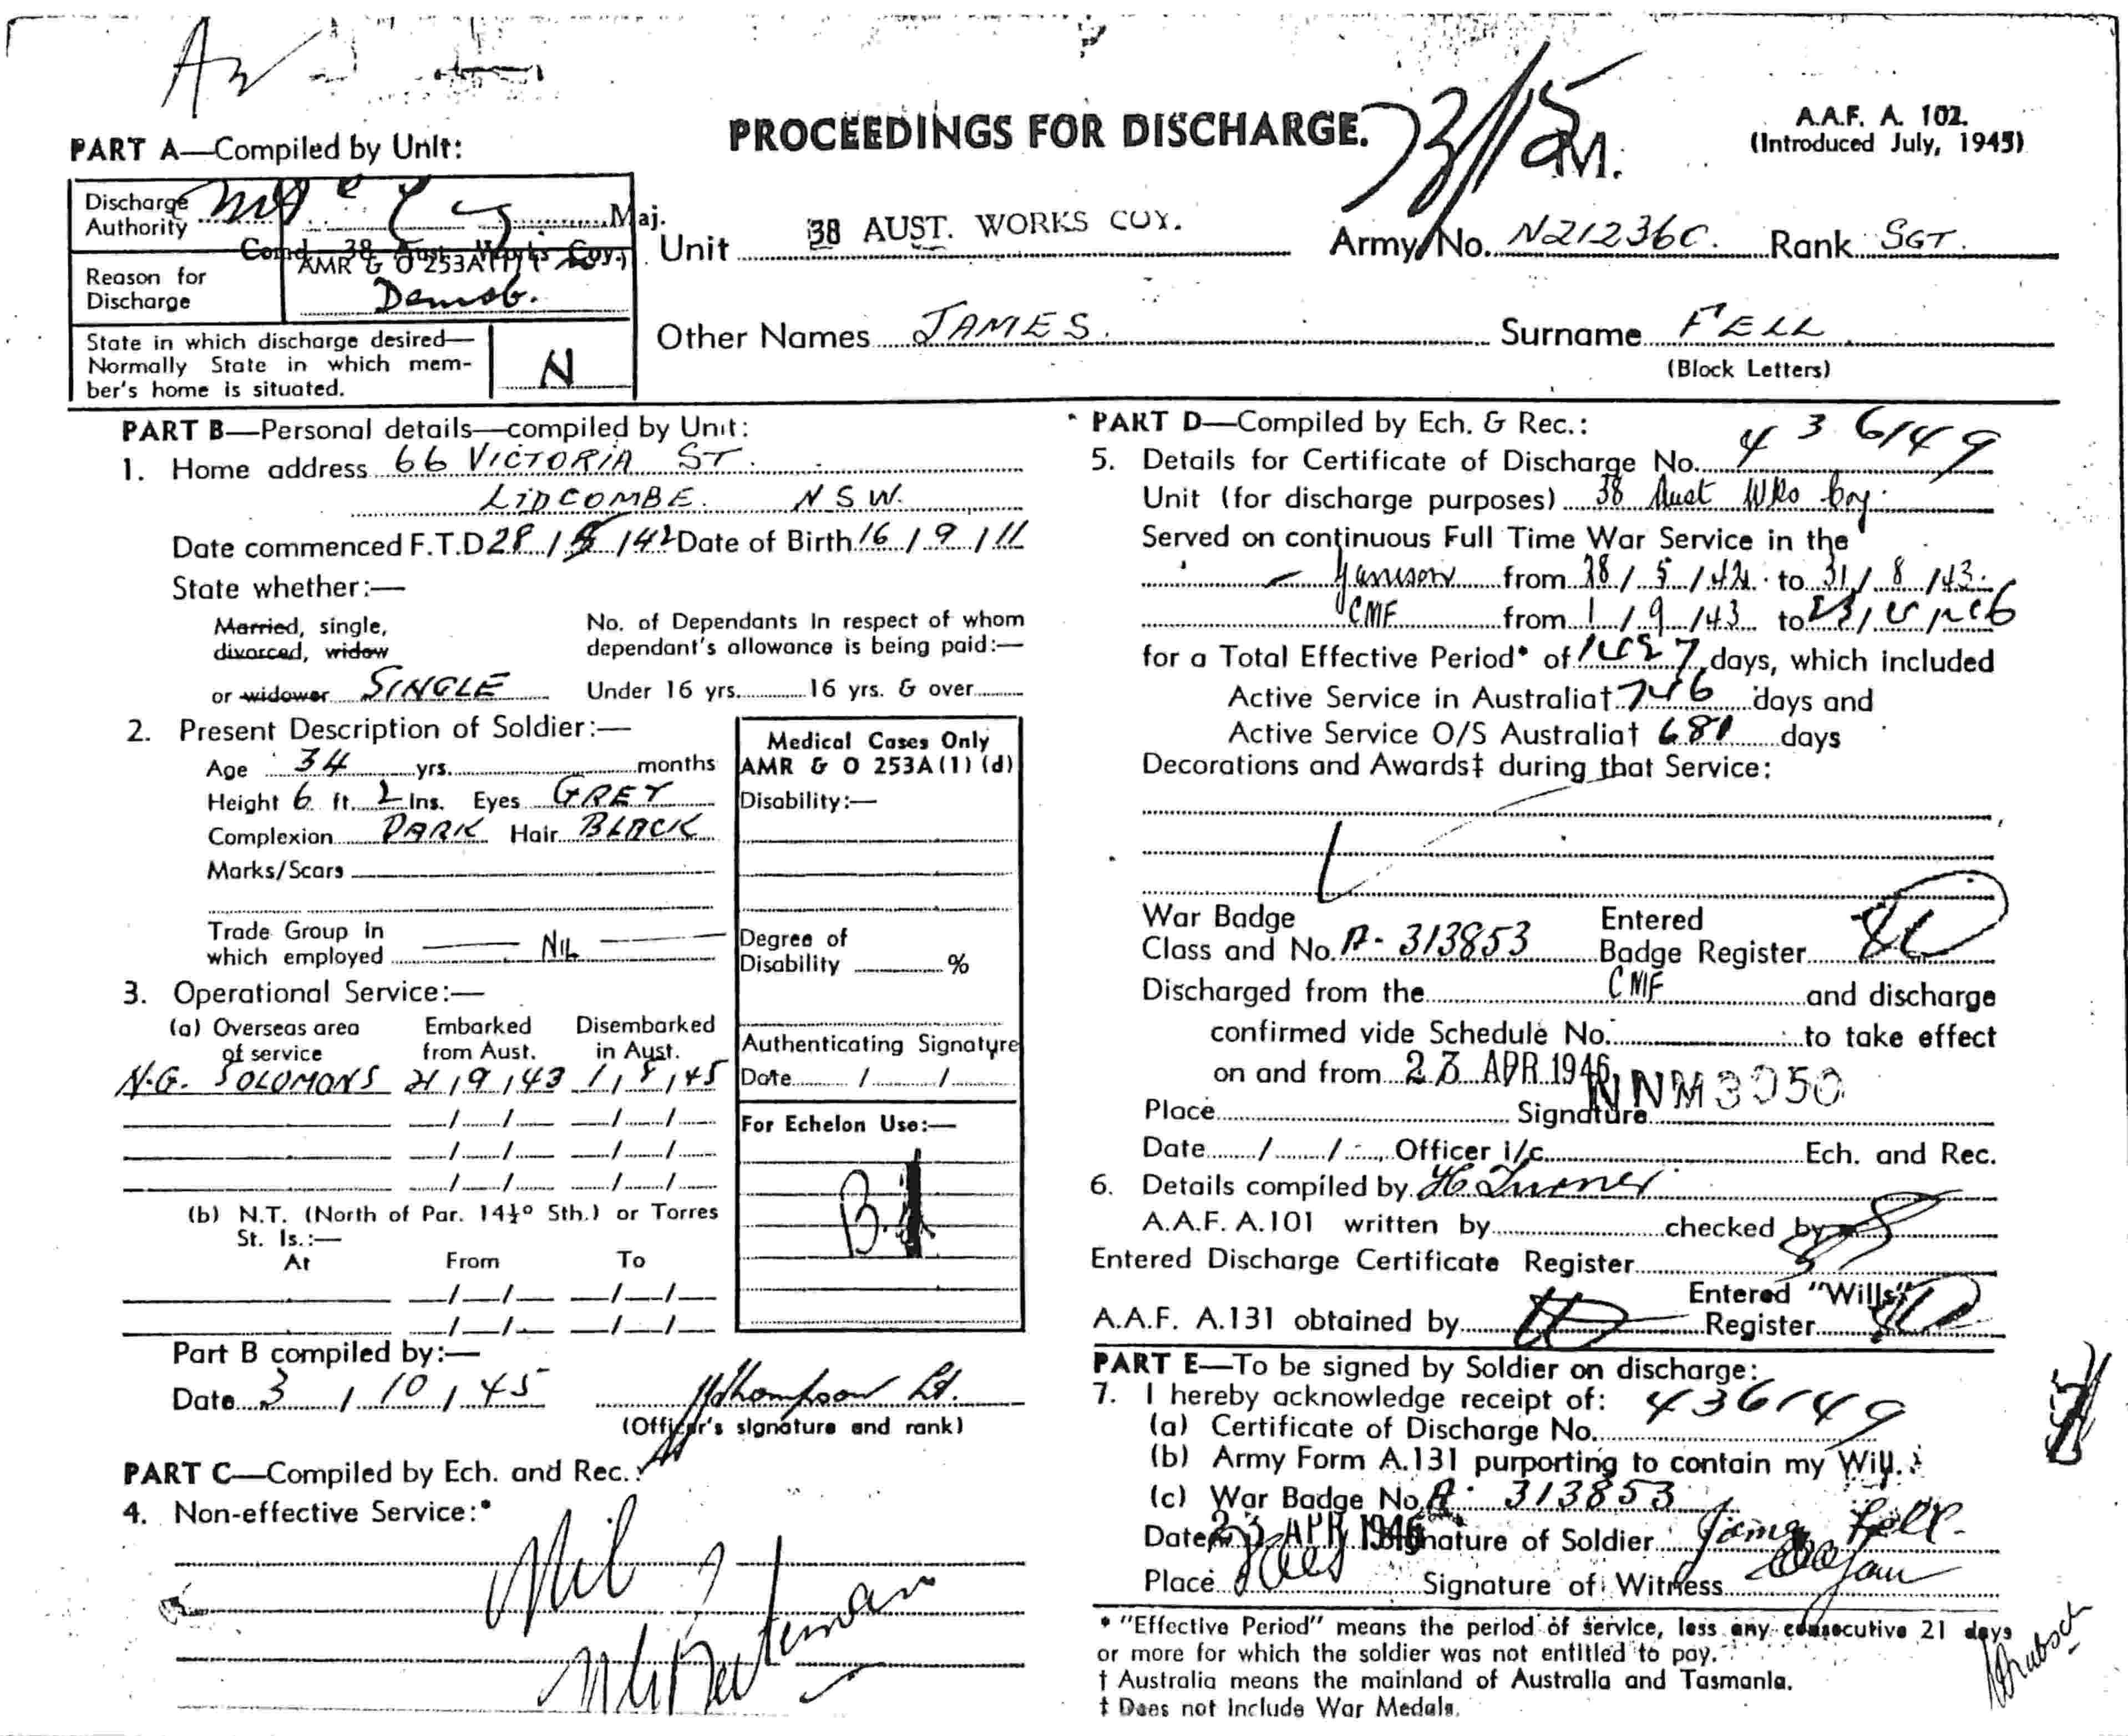 PROCEEDINGS FOR DISCHARGE.
A.A.F. A. 102.
(Introduced July, 1945)
PART A—Compiled by Unit:
Discharge Authority Maj.
Comd. 38 Aust. Works Coy.
Reason for Discharge AMR & O 253A(1)( )
Demob.
State in which discharge desired—
Normally State in which mem-
ber's home is situated. N
Unit 38 AUST. WORKS COY. Army No. N212360. Rank SGT.
Other Names JAMES. Surname FELL
(Block Letters)
PART B—Personal details—compiled by Unit:
1. Home address 66 VICTORIA ST.
LIDCOMBE. N S W.
Date commenced F.T.D 28/5/42 Date of Birth 16/9/11
State whether:—
Married, single,
divorced, widow
or widower SINGLE
No. of Dependants in respect of whom
dependant's allowance is being paid:—
Under 16 yrs. 16 yrs. & over
2. Present Description of Soldier:—
Age 34 yrs. months
Height 6 ft. 2 Ins. Eyes GREY
Complexion DARK Hair BLACK
Marks/Scars
Trade Group in
which employed NIL
3. Operational Service:—
(a) Overseas area of service Embarked from Aust. Disembarked in Aust.
N.G. SOLOMONS 21/9/43 1/8/45
(b) N.T. (North of Par. 14½° Sth.) or Torres
St. Is.:—
At From To
Part B compiled by:—
Date 3/10/45 Thompson Lt.
(Officer's signature and rank)
Medical Cases Only
AMR & O 253A(1) (d)
Disability:—
Degree of
Disability %
Authenticating Signature
Date / /
For Echelon Use:—
PART C—Compiled by Ech. and Rec.:
4. Non-effective Service:*
Nil
PART D—Compiled by Ech. & Rec.:
5. Details for Certificate of Discharge No. 436149
Unit (for discharge purposes) 38 Aust Wks Coy.
Served on continuous Full Time War Service in the
Garrison from 28/5/42 to 31/8/43.
CMF from 1/9/43 to 23/4/46
for a Total Effective Period* of 1427 days, which included
Active Service in Australia† 746 days and
Active Service O/S Australia† 681 days
Decorations and Awards‡ during that Service:
War Badge
Class and No. A- 313853
Entered
Badge Register
Discharged from the CMF and discharge
confirmed vide Schedule No. to take effect
on and from 23 APR 1946
NNM3050
Place Signature
Date / / Officer i/c Ech. and Rec.
6. Details compiled by H Turner
A.A.F. A.101 written by checked by
Entered Discharge Certificate Register
A.A.F. A.131 obtained by Entered "Wills" Register
PART E—To be signed by Soldier on discharge:
7. I hereby acknowledge receipt of:
(a) Certificate of Discharge No. 436149
(b) Army Form A.131 purporting to contain my Will.
(c) War Badge No. A. 313853
Date 23 APR 1946 Signature of Soldier James Fell.
Place Signature of Witness
* "Effective Period" means the period of service, less any consecutive 21 days
or more for which the soldier was not entitled to pay.
† Australia means the mainland of Australia and Tasmania.
‡ Does not Include War Medals.